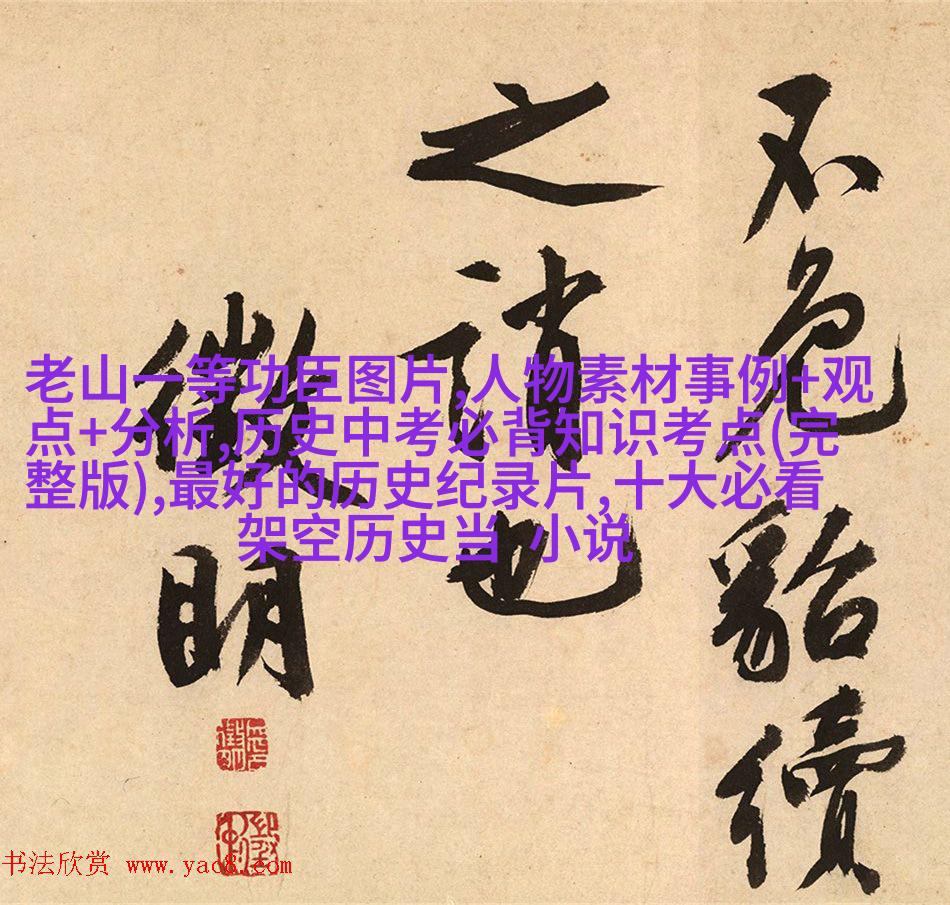 不免貂續
之誚也
徵明
老山一等功臣图片,人物素材事例+观
点+分析,历史中考必背知识考点(完
整版),最好的历史纪录片,十大必看
架空历史当 小说
书法欣赏 www.yac8.com